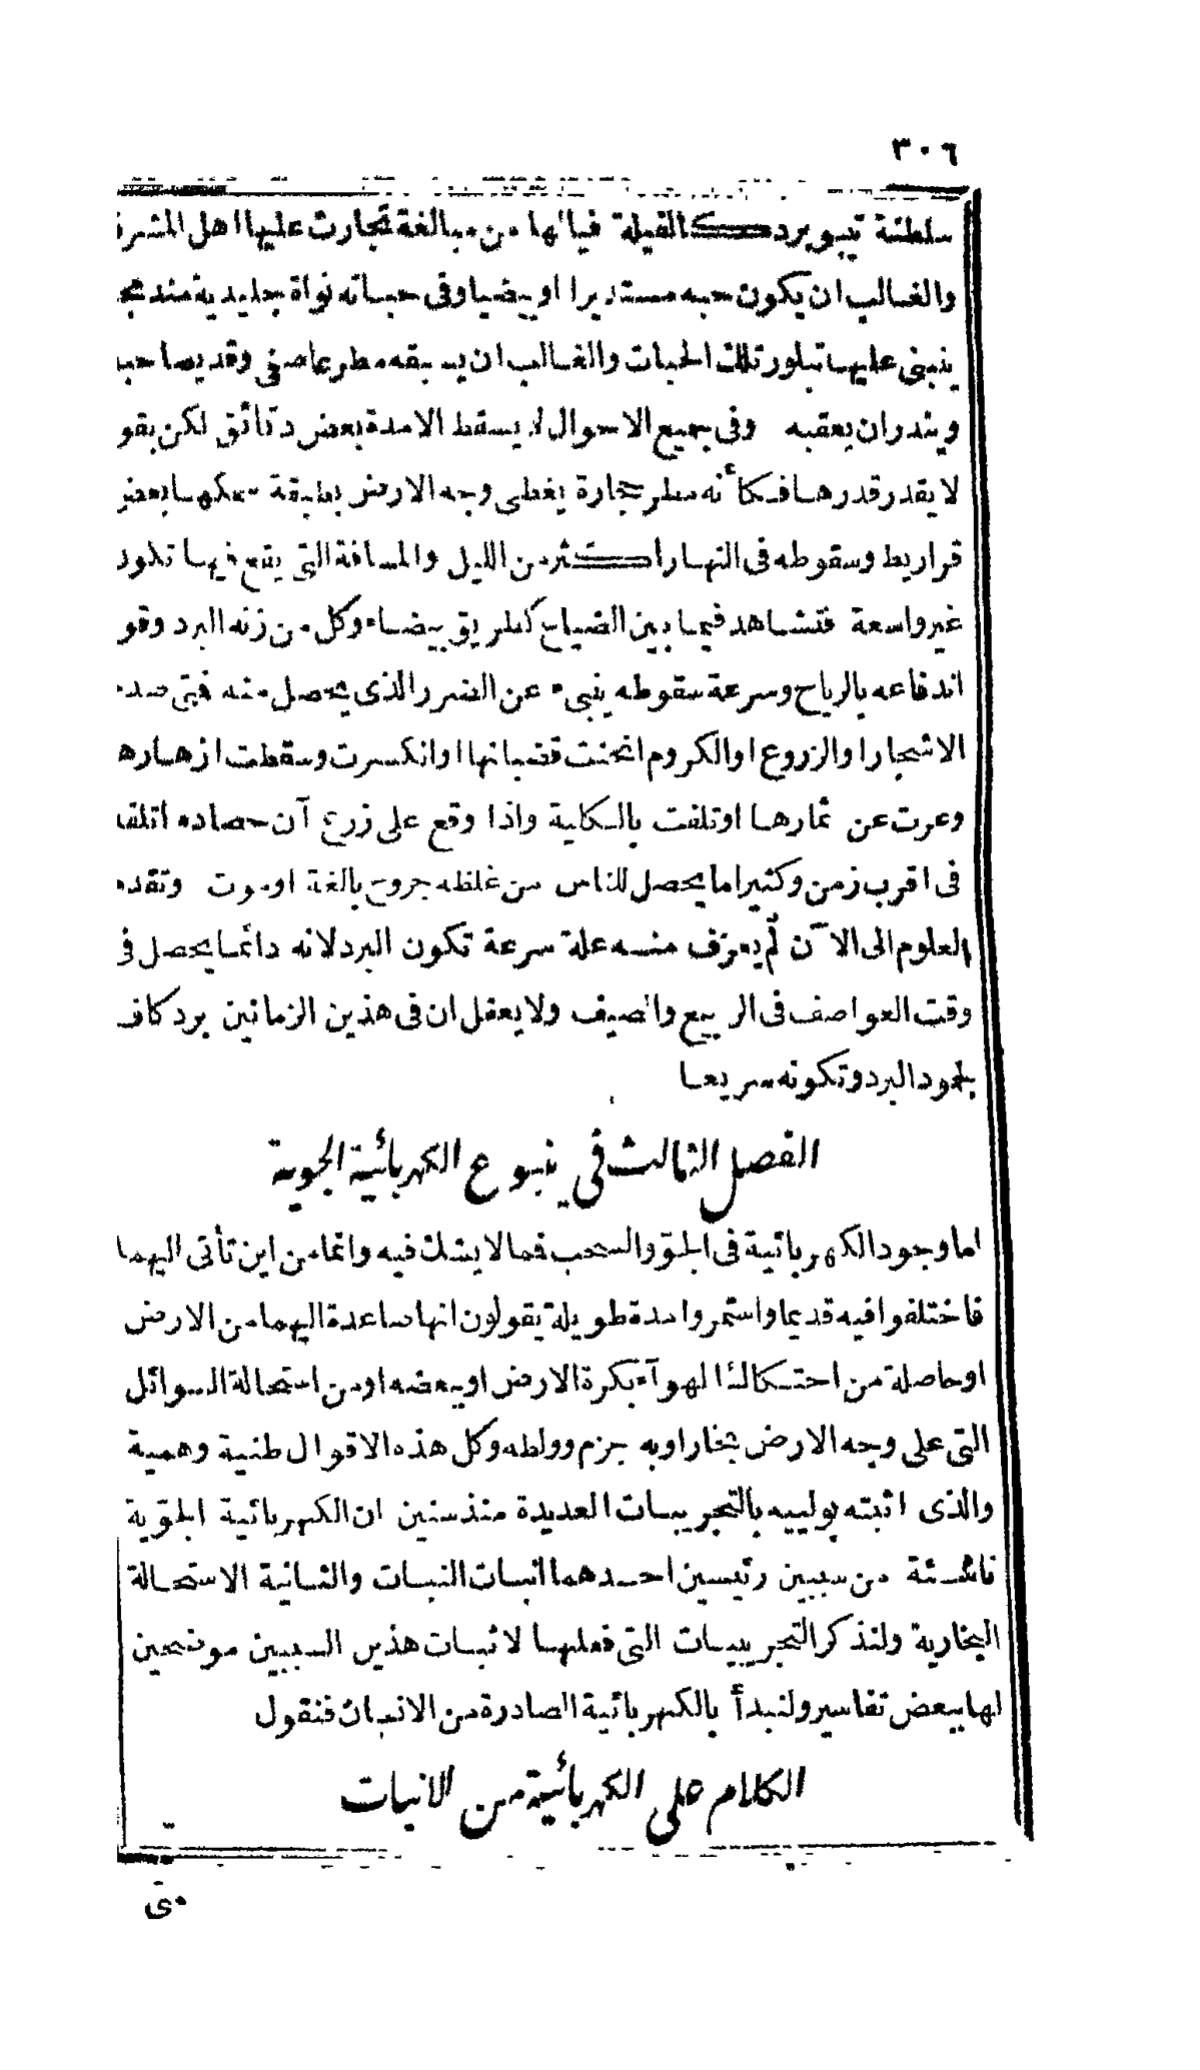 ٣٠٦
سلطنة تيبو برد كالفيلة فيالها من مبالغة تجارت عليها اهل المشرق
والغالب ان يكون حبه مستديرا او بيضيا وفى حباته نواة جليدية
ينبنى عليها تبلور تلك الحبات والغالب ان يسبقه مطر عاصفى وقد يصاحبه
ويندر ان يعقبه وفى جميع الاحوال لا يسقط الا مدة بعض دقائق لكن بقو
لا يقدر قدرها فكأنه مطر حجارة يغطى وجه الارض بطبقة سمكها بعض
قراريط وسقوطه فى النهار اكثر من الليل والمسافة التى يقع فيها تكون
غير واسعة فتشاهد فيما بين الضياع كطريق بيضاء وكل من زنه البرد وقو
اندفاعه بالرياح وسرعة سقوطه ينبىء عن الضرر الذى يحصل منه فمتى صد
الاشجار او الزروع او الكروم انحنت قضبانها او انكسرت وسقطت ازهاره
وعرت عن ثمارها او تلفت بالكلية واذا وقع على زرع آن حصاده اتلفه
فى اقرب زمن وكثيرا ما يحصل للناس من غلظه جروح بالغة او موت وتقد
العلوم الى الآن لم يعرف منه علة سرعة تكون البرد لانه دائما يحصل فى
وقت العواصف فى الربيع والصيف ولا يعقل ان فى هذين الزمانين برد كاف
لجمود البرد وتكونه سريعا
الفصل الثالث فى ينبوع الكهربائية الجوية
اما وجود الكهربائية فى الجو والسحب فمما لا يشك فيه وانما من اين تأتى اليهما
فاختلفوا فيه قديما واستمروا مدة طويلة يقولون انها صاعدة اليهما من الارض
او حاصلة من احتكاك الهوآء بكرة الارض او ببعضه او من استحالة السوائل
التى على وجه الارض بخارا وبه جزم وولطه وكل هذه الاقوال ظنية وهمية
والذى اثبته بولييه بالتجريبات العديدة منذ سنين ان الكهربائية الجوية
ناشئة من سببين رئيسين احدهما انبات النبات والثانية الاستحالة
البخارية ولنذكر التجريبات التى فعلها لاثبات هذين السببين موضحين
لها ببعض تفاسير ولنبدأ بالكهربائية الصادرة من الانبات فنقول
الكلام على الكهربائية من الانبات
متى